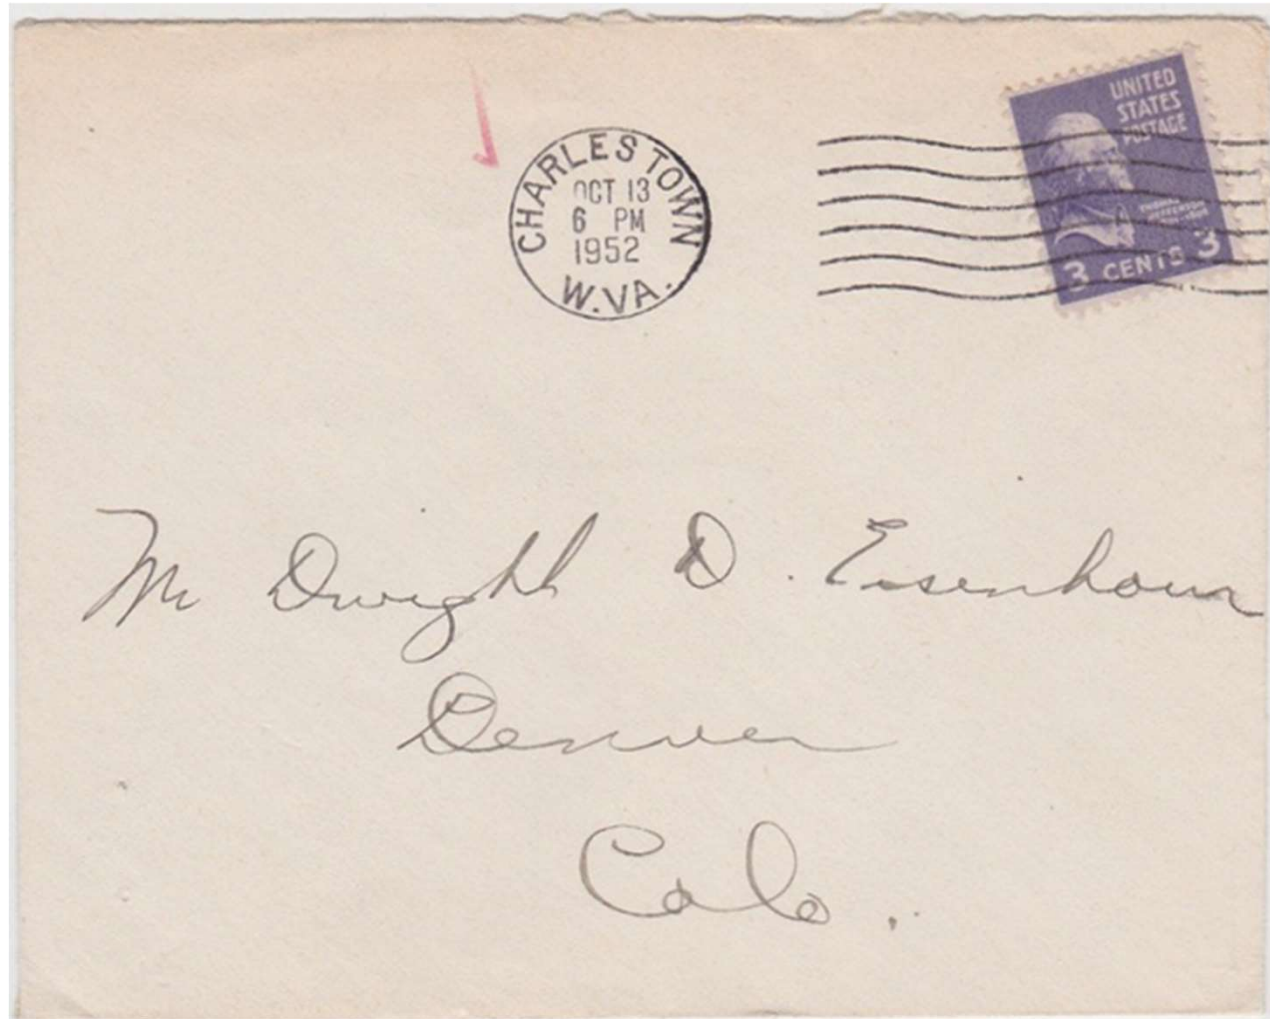 CHARLES TOWN
OCT 13
6 PM
1952
W.VA.
UNITED
STATES
POSTAGE
3 CENTS 3
Mr Dwight D. Eisenhower
Denver
Colo.